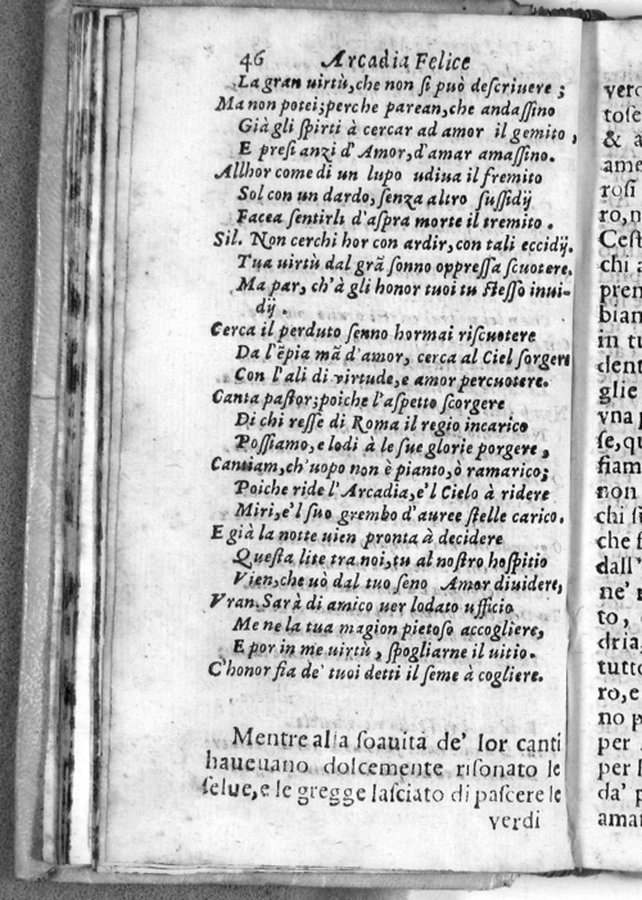 46 Arcadia Felice
La gran uirtù, che non ſi può deſcriuere ;
Ma non potei; perche parean, che andaſſino
Già gli ſpirti à cercar ad amor il gemito ,
E preſi anzi d' Amor, d'amar amaſſino.
Allhor come di un lupo udiua il fremito
Sol con un dardo, ſenza altro ſuſſidij
Facea ſentirli d'aſpra morte il tremito .
Sil. Non cerchi hor con ardir, con tali eccidij.
Tua uirtù dal grã ſonno oppreſſa ſcuotere,
Ma par, ch'à gli honor tuoi tu ſteſſo inui-
dij .
Cerca il perduto ſenno hormai riſcuotere
Da l'ẽpia mã d'amor, cerca al Ciel ſorgere
Con l'ali di virtude, e amor percuotere.
Canta paſtor; poiche l'aſpetto ſcorgere
Di chi reſſe di Roma il regio incarico
Poſſiamo, e lodi à le ſue glorie porgere ,
Cantiam, ch'uopo non è pianto, ò ramarico;
Poiche ride l' Arcadia, e'l Cielo à ridere
Miri, e'l ſuo grembo d'auree ſtelle carico.
E già la notte uien pronta à decidere
Queſta lite tra noi, tu al noſtro hoſpitio
Vien, che uò dal tuo ſeno Amor diuidere,
Vran. Sarà di amico uer lodato ufficio
Me ne la tua magion pietoſo accogliere,
E por in me uirtù , ſpogliarne il uitio.
C'honor fia de' tuoi detti il ſeme à cogliere.
Mentre alla ſoauità de' lor canti
haueuano dolcemente riſonato le
ſelue, e le gregge laſciato di paſcere le
verdi
tuoſe
& a
ame
roſi
ro, n
Ceſt
chi a
pren
bian
in tu
dent
glie
vna p
ſe, qu
fiam
non
chi ſi
che ſ
dall'
ne' r
to,
dria,
tutto
ro, e
no p
per
per l
da' p
amar